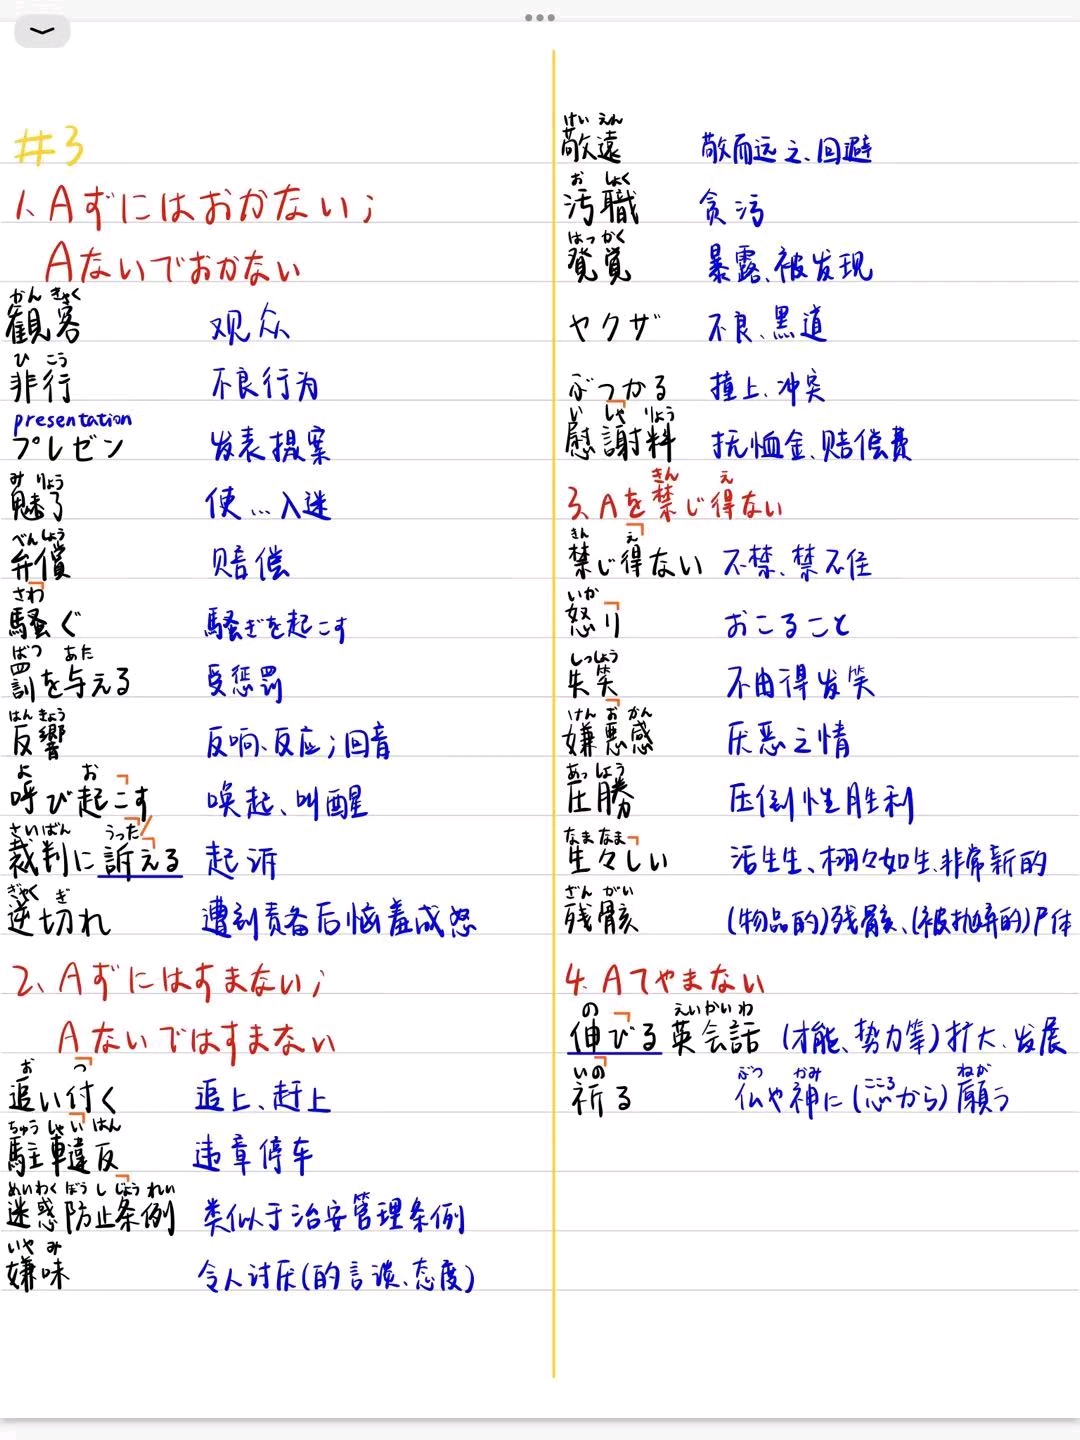 #3
1、Aずにはおかない；
Aないでおかない
かん きゃく
観客 观众
ひ こう
非行 不良行为
presentation
プレゼン 发表提案
み りょう
魅了 使…入迷
べんしょう
弁償 赔偿
さわ
騒ぐ 騒ぎを起こす
ばつ あた
罰を与える 受惩罚
はん きょう
反響 反响、反应；回音
よ お
呼び起こす 唤起、叫醒
さいばん うった
裁判に訴える 起诉
ぎゃく ぎ
逆切れ 遭到责备后恼羞成怒
2、Aずにはすまない；
Aないではすまない
お つ
追い付く 追上、赶上
ちゅう しゃ い はん
駐車違反 违章停车
めいわく ぼう し じょう れい
迷惑防止条例 类似于治安管理条例
いや み
嫌味 令人讨厌(的言谈、态度)
けい えん
敬遠 敬而远之、回避
お しょく
汚職 贪污
はっ かく
発覚 暴露、被发现
ヤクザ 不良、黑道
ぶつかる 撞上、冲突
い しゃ りょう
慰謝料 抚恤金、赔偿费
きん え
3、Aを禁じ得ない
きん え
禁じ得ない 不禁、禁不住
いか
怒り おこること
しっしょう
失笑 不由得发笑
けん お かん
嫌悪感 厌恶之情
あっ しょう
圧勝 压倒性胜利
なま なま
生々しい 活生生、栩々如生、非常新的
ざん がい
残骸 (物品的)残骸、(被抛弃的)尸体
4、Aてやまない
の えいかい わ
伸びる 英会話 (才能、势力等)扩大、发展
いの ぶつ かみ こころ ねが
祈る 仏や神に(心から)願う